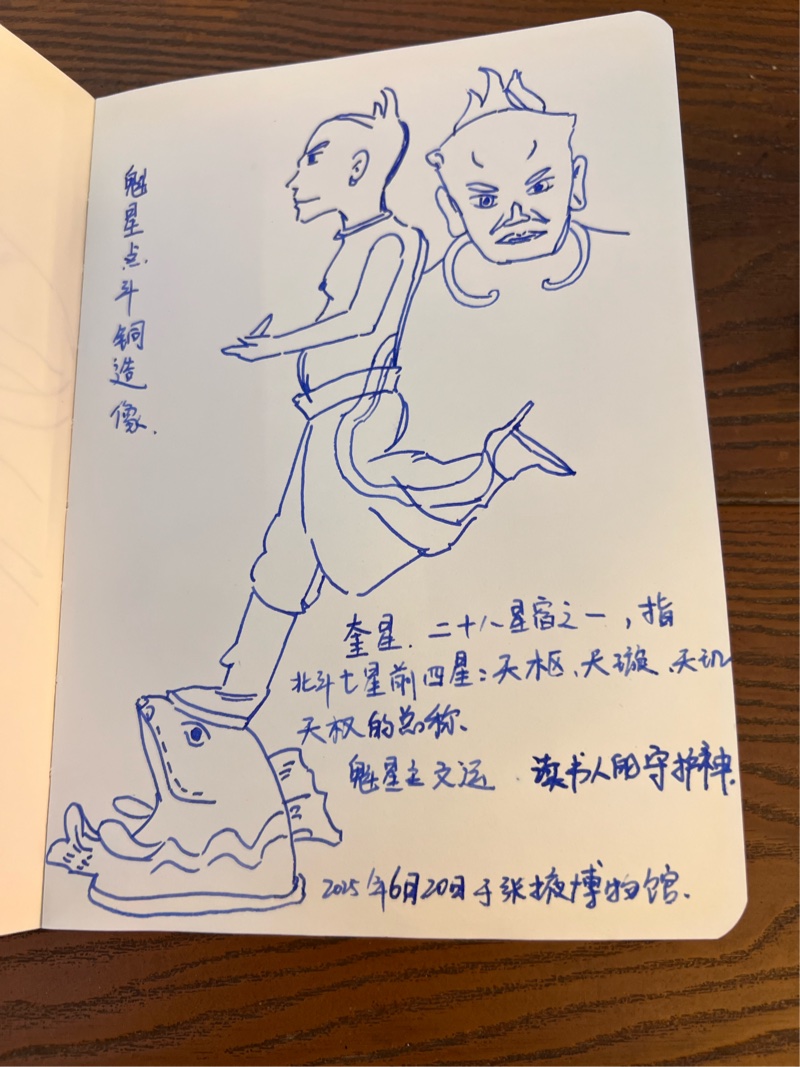 魁星点斗铜造像.
奎星.二十八星宿之一，指
北斗七星前四星：天枢、天璇、天玑
天权的总称、
魁星主文运.读书人的守护神.
2025年6月20日于张掖博物馆.